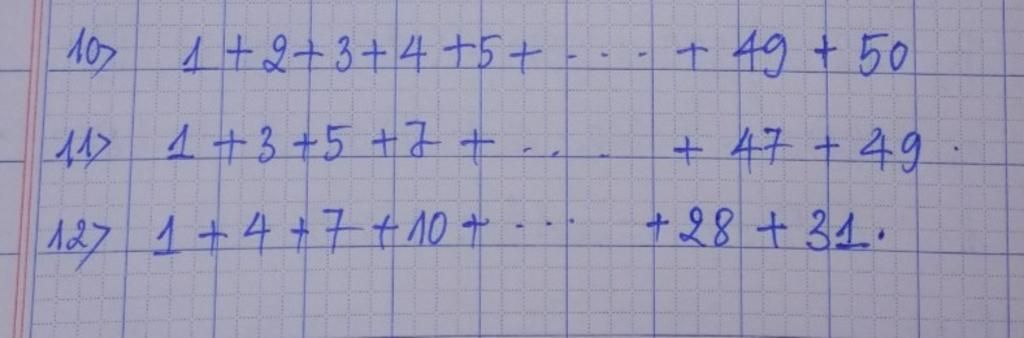 10> 1 + 2 + 3 + 4 + 5 + .... + 49 + 50
11> 1 + 3 + 5 + 7 + .... + 47 + 49.
12> 1 + 4 + 7 + 10 + .... + 28 + 31.